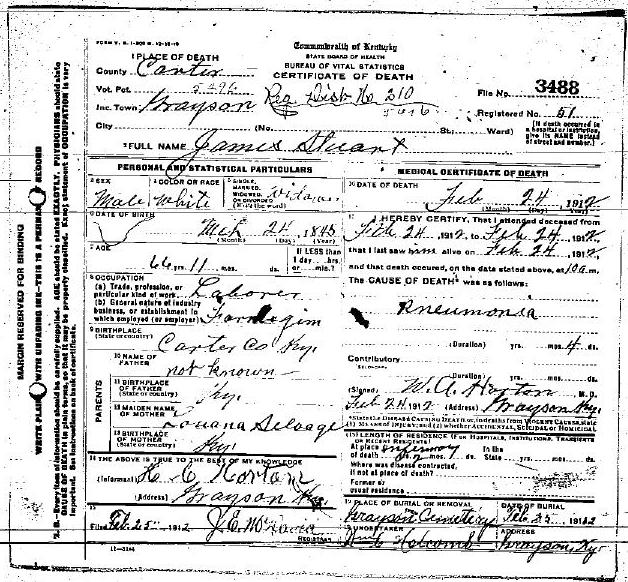 FORM V. S. 1-
Commonwealth of Kentucky
STATE BOARD OF HEALTH
BUREAU OF VITAL STATISTICS
CERTIFICATE OF DEATH
1 PLACE OF DEATH
County Carter
Vot. Pct.
Inc. Town Grayson Reg Dist No 210
City (No. St.; Ward)
File No. 3488
Registered No. 51
(If death occurred in a hospital or institution, give its NAME instead of street and number.)
2 FULL NAME James Stuart
PERSONAL AND STATISTICAL PARTICULARS
3 SEX Male
4 COLOR OR RACE White
5 SINGLE, MARRIED, WIDOWED, OR DIVORCED (Write the word)
6 DATE OF BIRTH Mch 24, 1845
(Month) (Day) (Year)
7 AGE 66 yrs. 11 mos. ds.
If LESS than 1 day hrs. or min.?
8 OCCUPATION
(a) Trade, profession, or particular kind of work Laborer
(b) General nature of industry business, or establishment in which employed (or employer)
9 BIRTHPLACE (State or country) Carter Co Ky.
PARENTS
10 NAME OF FATHER not known
11 BIRTHPLACE OF FATHER (State or country) Ky.
12 MAIDEN NAME OF MOTHER Louana
13 BIRTHPLACE OF MOTHER (State or country) Ky.
14 THE ABOVE IS TRUE TO THE BEST OF MY KNOWLEDGE
(Informant) H. C. Horton
(Address) Grayson Ky.
15 Filed Feb 25, 1912 J. E.
REGISTRAR
MEDICAL CERTIFICATE OF DEATH
16 DATE OF DEATH Feb 24, 1912
(Month) (Day) (Year)
17 I HEREBY CERTIFY, That I attended deceased from
Feb 24, 1912, to Feb 24, 1912,
that I last saw him alive on Feb 24, 1912,
and that death occured, on the date stated above, at 10 a m.
The CAUSE OF DEATH was as follows:
Pneumonia
(Duration) yrs. mos. 4 ds.
Contributory
(Duration) yrs. mos. ds.
(Signed) W. A. Horton M. D.
Feb 24, 1912 (Address) Grayson Ky.
State the DISEASE CAUSING DEATH, or, in deaths from VIOLENT CAUSES, state (1) MEANS OF INJURY; and (2) whether ACCIDENTAL, SUICIDAL or HOMICIDAL
18 LENGTH OF RESIDENCE (FOR HOSPITALS, INSTITUTIONS, TRANSIENTS OR RECENT RESIDENTS)
At place of death yrs. mos. ds. In the State yrs. mos. ds.
Where was disease contracted, if not at place of death?
Former or usual residence
19 PLACE OF BURIAL OR REMOVAL Grayson Cemetery
DATE OF BURIAL Feb. 25, 1912
20 UNDERTAKER Holcomb
ADDRESS Grayson, Ky
MARGIN RESERVED FOR BINDING
WRITE PLAINLY WITH UNFADING INK—THIS IS A PERMANENT RECORD
N. B.—Every item of information should be carefully supplied. AGE should be stated EXACTLY. PHYSICIANS should state CAUSE OF DEATH in plain terms, so that it may be properly classified. Exact statement of OCCUPATION is very important. See instructions on back of certificate.